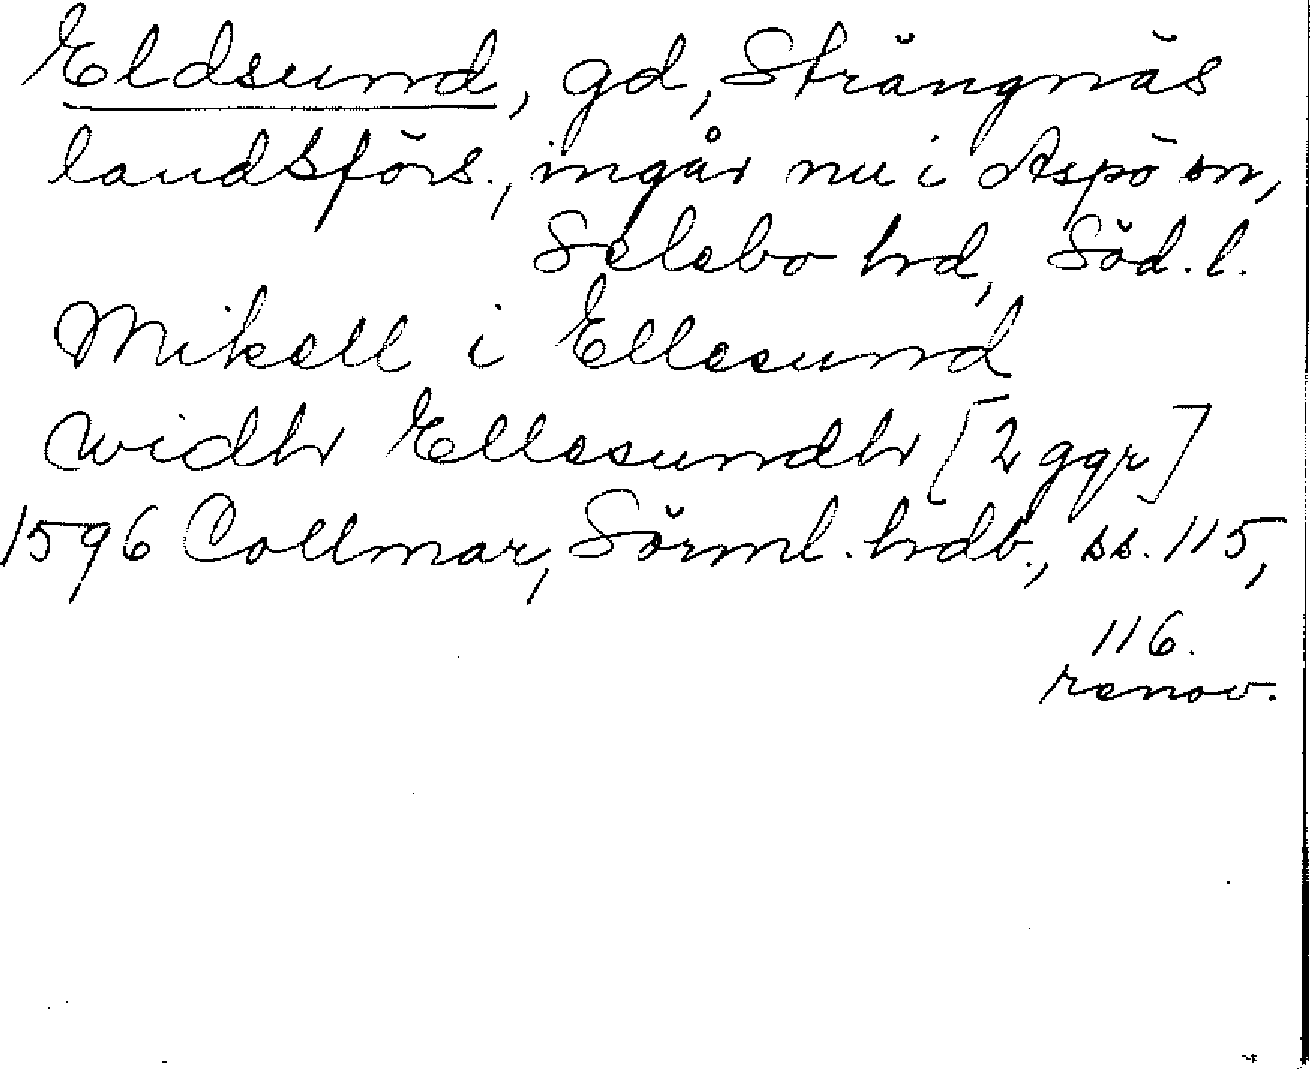 Eldsund, gd, Strängnäs
landsförs., ingår nu i Aspö sn,
Selebo hd, Söd. l.
Mikell i Ellesund
widh Ellesundh [2 ggr]
1596 Collmar, Sörml. hdb., ss. 115,
116.
renov.